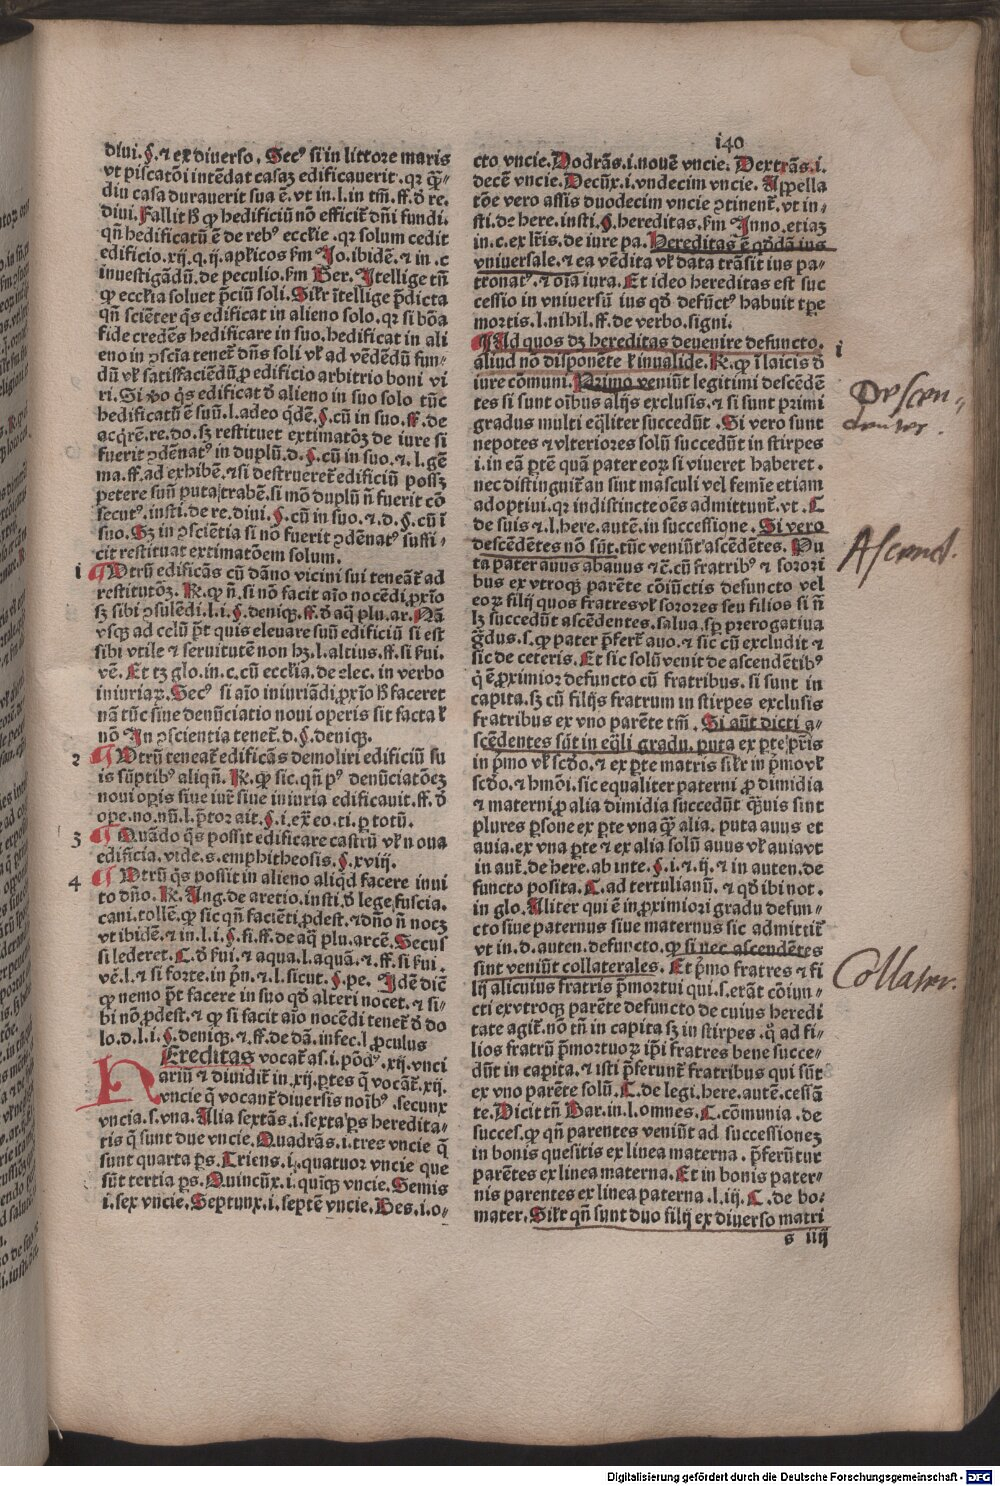 i40
diui.§.⁊ ex diuerso. Secꝰ si in littore maris
vt piscatōi intēdat casaȝ edificauerit. qꝛ q̄ꝫ-
diu casa durauerit sua ē. vt in.l.in tm̄.ff.đ re.
diui. Fallit ꝙ hedificiū nō efficit̃ dñi fundi.
qñ hedificatū ē de rebꝰ ecclīe. qꝛ solum cedit
edificio.xij.q.ij.apl'icos ẜm Jo.ibidē.⁊ in .c
inuestigādū.de peculio.ẜm Ber. Jtellige tñ
ꝙ ecclīa soluet p̄ciū soli. Sil'r ītellige p̄dicta
qñ sciēter q̄s edificat in alieno solo. qꝛ si bōa
fide credēs hedificare in suo. hedificat in ali
eno in ꝯscīa tenet̃ dñs soli vl' ad vēdēdū fun-
dū vl' satisfaciēdū ꝓ edificio arbitrio boni vi
ri. Si vo q̄s edificat đ alieno in suo solo tūc
hedificatū ē suū.l.adeo qđē.§.cū in suo.ff.de
acq̄rē.re.do. sȝ restituet extimatōȝ de iure si
fuerit ꝯdēnatꝰ in duplū.d.§.cū in suo.⁊.l.gē
ma.ff.ad exhibē.⁊ si destrueret̃ edificiū possȝ
petere suū puta trabē. si mō duplū ñ fuerit cō
secutꝰ.insti.de re.diui.§.cū in suo.⁊.d.§.cū ī
suo. Sȝ in ꝯsciētia si nō fuerit ꝯdēnatꝰ suffi-
cit restituat extimatōem solum.
i ¶ Vtrū edificās cū dāno vicini sui teneat̃ ad
restitutōȝ. R̃. ꝙ ñ. si nō facit aīo nocēdi ꝓxīo
sȝ sibi ꝯsulēdi.l.i.§.deniqꝫ.ff.đ aq̄ plu.ar. Nā
vsqꝫ ad celū p̄t quis eleuare suū edificiū si est
sibi vtile ⁊ seruitutē non hȝ.l.altius.ff.si ẜui.
vē. Et tȝ glo.in.c.cū ecclīa.de elec.in verbo
iniuriaꝝ. Secꝰ si aīo iniuriādi ꝓxīo faceret
nā tūc sine denūciatio noui operis sit facta l'
nō Jn ꝯscientia tenet̃.d.§.deniqꝫ.
2 ¶ Vtrū teneat̃ edificās demoliri edificiū su
is sūptibꝰ aliqñ. R̃. ꝙ sic. qñ pꝰ denūciatōeȝ
noui oꝑis siue iur̃ siue iniuria edificauit.ff.đ
oꝑe.no.nū.l.p̄tor ait.§.i.ex̃ eo.ti.ꝑ totū.
3 ¶ Quādo q̄s possit edificare castrū vl' noua
edificia. vide.s.emphitheosis.§.xviij.
4 ¶ Vtrū q̄s possit in alieno aliqđ facere inui
to dño. R̃. Ang.de aretio.insti.đ lege fuscia.
cani.tollē. ꝙ sic qñ faciēti ꝓdest.⁊ dño ñ nocȝ
vt ibidē.⁊ in.l.i.§.fi.ff.de aq̄ plu.arcē. Secus
si lederet. C.đ ẜui.⁊ aqua.l.aquā.⁊.ff.si ẜui.
vē.l.⁊ si forte.in p̄n.⁊.l.sicut.§.pe. Jdē diē
ꝙ nemo p̄t facere in suo qđ alteri nocet.⁊ si-
bi nō ꝓdest.⁊ ꝙ si facit aīo nocēdi tenet̃ đ do
lo.d.l.i.§.deniqꝫ.⁊.ff.de dā.infec.l.ꝓculus
Hereditas vocat̃ as.i.pōdꝰ.xij.vnci
ariū ⁊ diuidit̃ in.xij.ꝑtes q̄ vocāt̃.xij.
vncie q̄ vocant̃ diuersis noībꝰ.secunx
vncia.s.vna. Alia sextās.i.sexta ꝑs heredita-
tis q̄ sunt due vncie. Quadrās.i.tres vncie q̄
sunt quarta ꝑs. Triens.i.quatuor vncie que
sūt tertia ꝑs. Quincūx.i.quīqꝫ vncie. Semis
i.sex vncie. Septunx.i.septē vncie. Bes.i.o-
cto vncie. Dodrās.i.nouē vncie. Dextrās.i.
decē vncie. Decūx.i.vndecim vncie. Appella
tōe vero assis duodecim vncie ꝯtinent̃.vt in-
sti.de here.insti.§.hereditas.ẜm Jnno.etiaȝ
in.c.ex lr̄is.de iure pa. Hereditas ē qđdā ius
vniuersale.⁊ ea vēdita vl' data trāsit ius pa-
tronatꝰ.⁊ oīa iura. Et ideo hereditas est suc
cessio in vniuersū ius qđ defūctꝰ habuit tꝑe
mortis.l.nihil.ff.de verbo.signi.
¶ Ad quos dȝ hereditas deuenire defuncto. i
aliud nō disponēte l' inualide. R̃. ꝙ ī laicis đ
iure cōmuni. Primo veniūt legitimi descēdē
tes si sunt oībus alijs exclusis.⁊ si sunt primi
gradus multi eq̄liter succedūt. Si vero sunt
nepotes ⁊ vlteriores solū succedūt in stirpes
i.in eā ꝑtē quā pater eoꝝ si viueret haberet.
nec distinguit̃ an sint masculi vel femīe etiam
adoptiui. qꝛ indistincte oēs admittunt̃.vt. C
de suis ⁊.l.here.autē.in successione. Si vero
descēdētes nō sūt. tūc veniūt ascēdētes. Pu
ta pater auus abauus ⁊ c̄.cū fratribꝰ ⁊ sorori
bus ex vtroqꝫ parēte cōiūctis defuncto vel
eoꝝ filij quos fratres vl' sorores seu filios si ñ
lȝ succedūt ascēdētes. salua sꝑ prerogatiua
g̃dus.s.ꝙ pater p̄fert̃ auo.⁊ sic cū excludit ⁊
sic de ceteris. Et sic solū venit de ascendētibꝰ
q̇ ē ꝓximior defuncto cū fratribus. si sunt in
capita. sȝ cū filijs fratrum in stirpes exclusis
fratribus ex vno parēte tm̄. Si aūt dicti a-
scēdentes sūt in eq̄li gradu. puta ex ꝑte pr̄is
in p̄mo vl' scđo.⁊ ex ꝑte matris sil'r in p̄mo vl'
scđo.⁊ hmōi. sic equaliter paterni ꝓ dimidia
⁊ materni ꝓ alia dimidia succedūt q̄ꝫuis sint
plures ꝑsone ex ꝑte vna q̄ꝫ alia. puta auus et
auia.ex vna ꝑte ⁊ ex alia solū auus vl' auia vt
in aut̃.de here.ab inte.§.i.⁊.ij.⁊ in auten.de
functo posita. C.ad tertulianū.⁊ qđ ibi not.
in glo. Aliter qui ē in ꝓximiori gradu defun-
cto siue paternus siue maternus sic admittit̃
vt in.d.auten.defuncto. ꝙ si nec ascendētes
sint veniūt collaterales. Et p̄mo fratres ⁊ fi
lij alicuius fratris p̄mortui qui.s.erāt cōiun-
cti ex vtroqꝫ parēte defuncto de cuius heredi
tate agit̃. nō tñ in capita sȝ in stirpes. q̄ ad fi-
lios fratrū p̄mortuoꝝ ip̄i fratres bene succe-
dūt in capita.⁊ isti p̄ferunt̃ fratribus qui sūt
ex vno parēte solū. C.de legi.here.autē.cessā
te. Dicit tñ Bar.in.l.omnes. C.cōmunia.de
succes. ꝙ qñ parentes veniūt ad successioneȝ
in bonis quesitis ex linea materna. p̄ferūtur
parētes ex linea materna. Et in bonis pater-
nis parentes ex linea paterna.l.iij. C.de bo.
mater. Sil'r qñ sunt duo filij ex diuerso matri
s iiij
Descen-
dentes.
Ascend.
Collater.
Digitalisierung gefördert durch die Deutsche Forschungsgemeinschaft - DFG